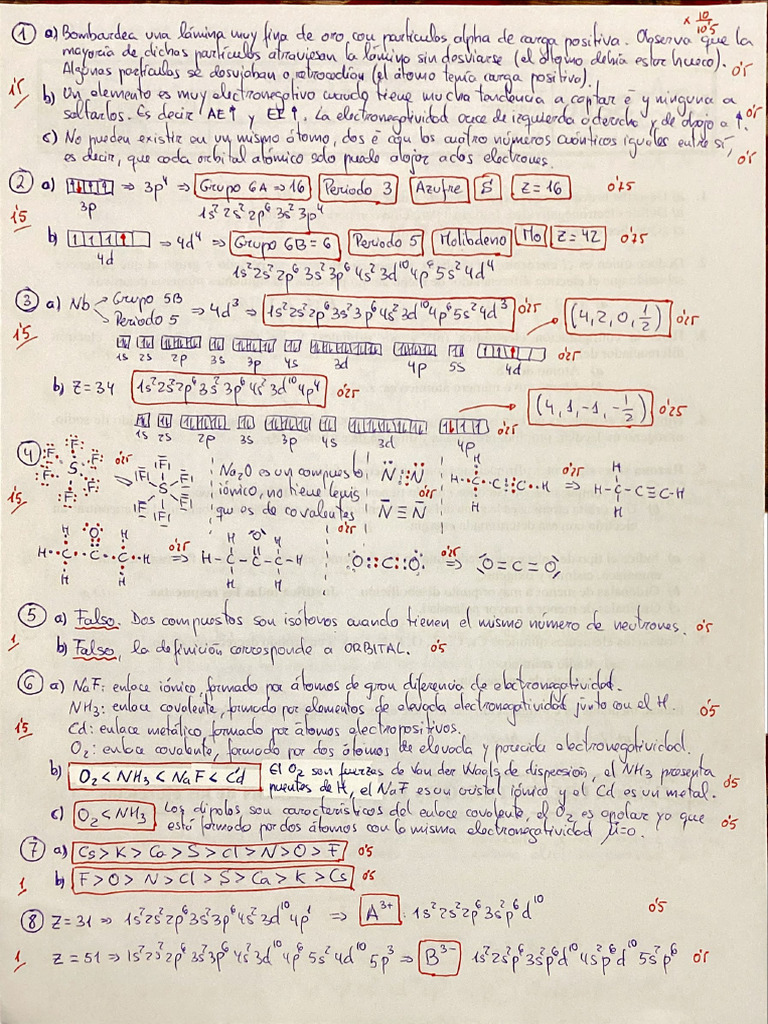 x 10/10'5
① a) Bombardea una lámina muy fina de oro con partículas alpha de carga positiva. Observa que la
mayoría de dichas partículas atraviesan la lámina sin desviarse (el átomo debía estar hueco).
Algunas partículas se desviaban o retrocedían (el átomo tenía carga positiva). 0'5
1'5
b) Un elemento es muy electronegativo cuando tiene mucha tendencia a captar ē y ninguna a
soltarlos. Es decir AE↑ y EI↑. La electronegatividad crece de izquierda a derecha y de abajo a ↑. 0'5
c) No pueden existir en un mismo átomo, dos ē con los cuatro números cuánticos iguales entre sí,
es decir, que cada orbital atómico solo puede alojar a dos electrones. 0'5
② a) ⇒ 3p⁴ ⇒ Grupo 6A = 16 Periodo 3 Azufre S Z = 16 0'75
3p 1s² 2s² 2p⁶ 3s² 3p⁴
1'5
b) ⇒ 4d⁴ ⇒ Grupo 6B = 6 Periodo 5 Molibdeno Mo Z = 42 0'75
4d 1s² 2s² 2p⁶ 3s² 3p⁶ 4s² 3d¹⁰ 4p⁶ 5s² 4d⁴
③ a) Nb Grupo 5B Periodo 5 ⇒ 4d³ ⇒ 1s² 2s² 2p⁶ 3s² 3p⁶ 4s² 3d¹⁰ 4p⁶ 5s² 4d³ 0'25 → (4, 2, 0, 1/2) 0'25
1'5
1s 2s 2p 3s 3p 4s 3d 4p 5s 4d 0'25
b) Z = 34 1s² 2s² 2p⁶ 3s² 3p⁶ 4s² 3d¹⁰ 4p⁴ 0'25 → (4, 1, -1, -1/2) 0'25
1s 2s 2p 3s 3p 4s 3d 4p 0'25
④ F F F S F F F 0'25 F F F S F F F Na₂O es un compuesto N N 0'25 H C C C H 0'25 ⇒ H-C-C≡C-H
1'5 iónico, no tiene Lewis N ≡ N
que es de covalentes 0'25
H C C C H O ⇒ 0'25 H-C-C-C-H O O C O 0'25 ⇒ O=C=O
⑤ a) Falso. Dos compuestos son isótonos cuando tienen el mismo número de neutrones. 0'5
1
b) Falso, la definición corresponde a ORBITAL. 0'5
⑥ a) NaF: enlace iónico, formado por átomos de gran diferencia de electronegatividad.
NH₃: enlace covalente, formado por elementos de elevada electronegatividad junto con el H. 0'5
1'5
Cd: enlace metálico, formado por átomos electropositivos.
O₂: enlace covalente, formado por dos átomos de elevada y parecida electronegatividad.
b) O₂ < NH₃ < NaF < Cd El O₂ son fuerzas de Van der Waals de dispersión, el NH₃ presenta
puentes de H, el NaF es un cristal iónico y el Cd es un metal. 0'5
c) O₂ < NH₃ Los dipolos son característicos del enlace covalente, el O₂ es apolar ya que
está formado por dos átomos con la misma electronegatividad μ=0. 0'5
⑦ a) Cs > K > Ca > S > Cl > N > O > F 0'5
1
b) F > O > N > Cl > S > Ca > K > Cs 0'5
⑧ Z = 31 ⇒ 1s² 2s² 2p⁶ 3s² 3p⁶ 4s² 3d¹⁰ 4p¹ ⇒ A³⁺ : 1s² 2s² 2p⁶ 3s² p⁶ d¹⁰ 0'5
1
Z = 51 ⇒ 1s² 2s² 2p⁶ 3s² 3p⁶ 4s² 3d¹⁰ 4p⁶ 5s² 4d¹⁰ 5p³ ⇒ B³⁻ 1s² 2s² p⁶ 3s² p⁶ d¹⁰ 4s² p⁶ d¹⁰ 5s² p⁶ 0'5